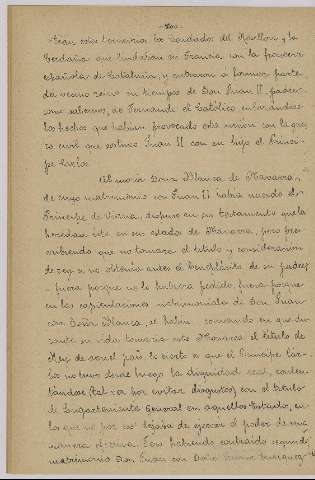 Eran estos territorios los Condados del Rosellon y la
Cerdaña que lindaban en Francia con la frontera
española de Cataluña, y entraron a formar parte
del vecino reino en tiempos de Don Juan II, padre,
como sabemos, de Fernando el Católico enlazándose
los hechos que habian provocado esta unión con la gue-
rra civil que sostuvo Juan II con su hijo el Princi-
pe Carlos.
Al morir Doña Blanca de Navarra,
de cuyo matrimonio con Juan II habia nacido el
Principe de Viana, dispuso en su testamento que la
heredase éste en su estado de Navarra, pero pres-
cribiendo que no tomara el titulo y consideración
de rey si no obtenia antes el beneplácito de su padre;
y fuera porque no lo hubiera pedido, fuera porque
en las capitulaciones matrimoniales de Don Juan
con Doña Blanca, se habia convenido en que du-
rante su vida tomaria este Monarca el titulo de
Rey de aquel pais, lo cierto es que el Principe Car-
los no tuvo desde luego la dignidad real, conten-
tándose (tal vez por evitar disgustos) con el titulo
de Lugarteniente General en aquellos Estados, en
los que no por eso dejaba de ejercer el poder de una
manera efectiva. Pero habiendo contraido segundo
matrimonio Don Juan con Doña Juana Enriquez